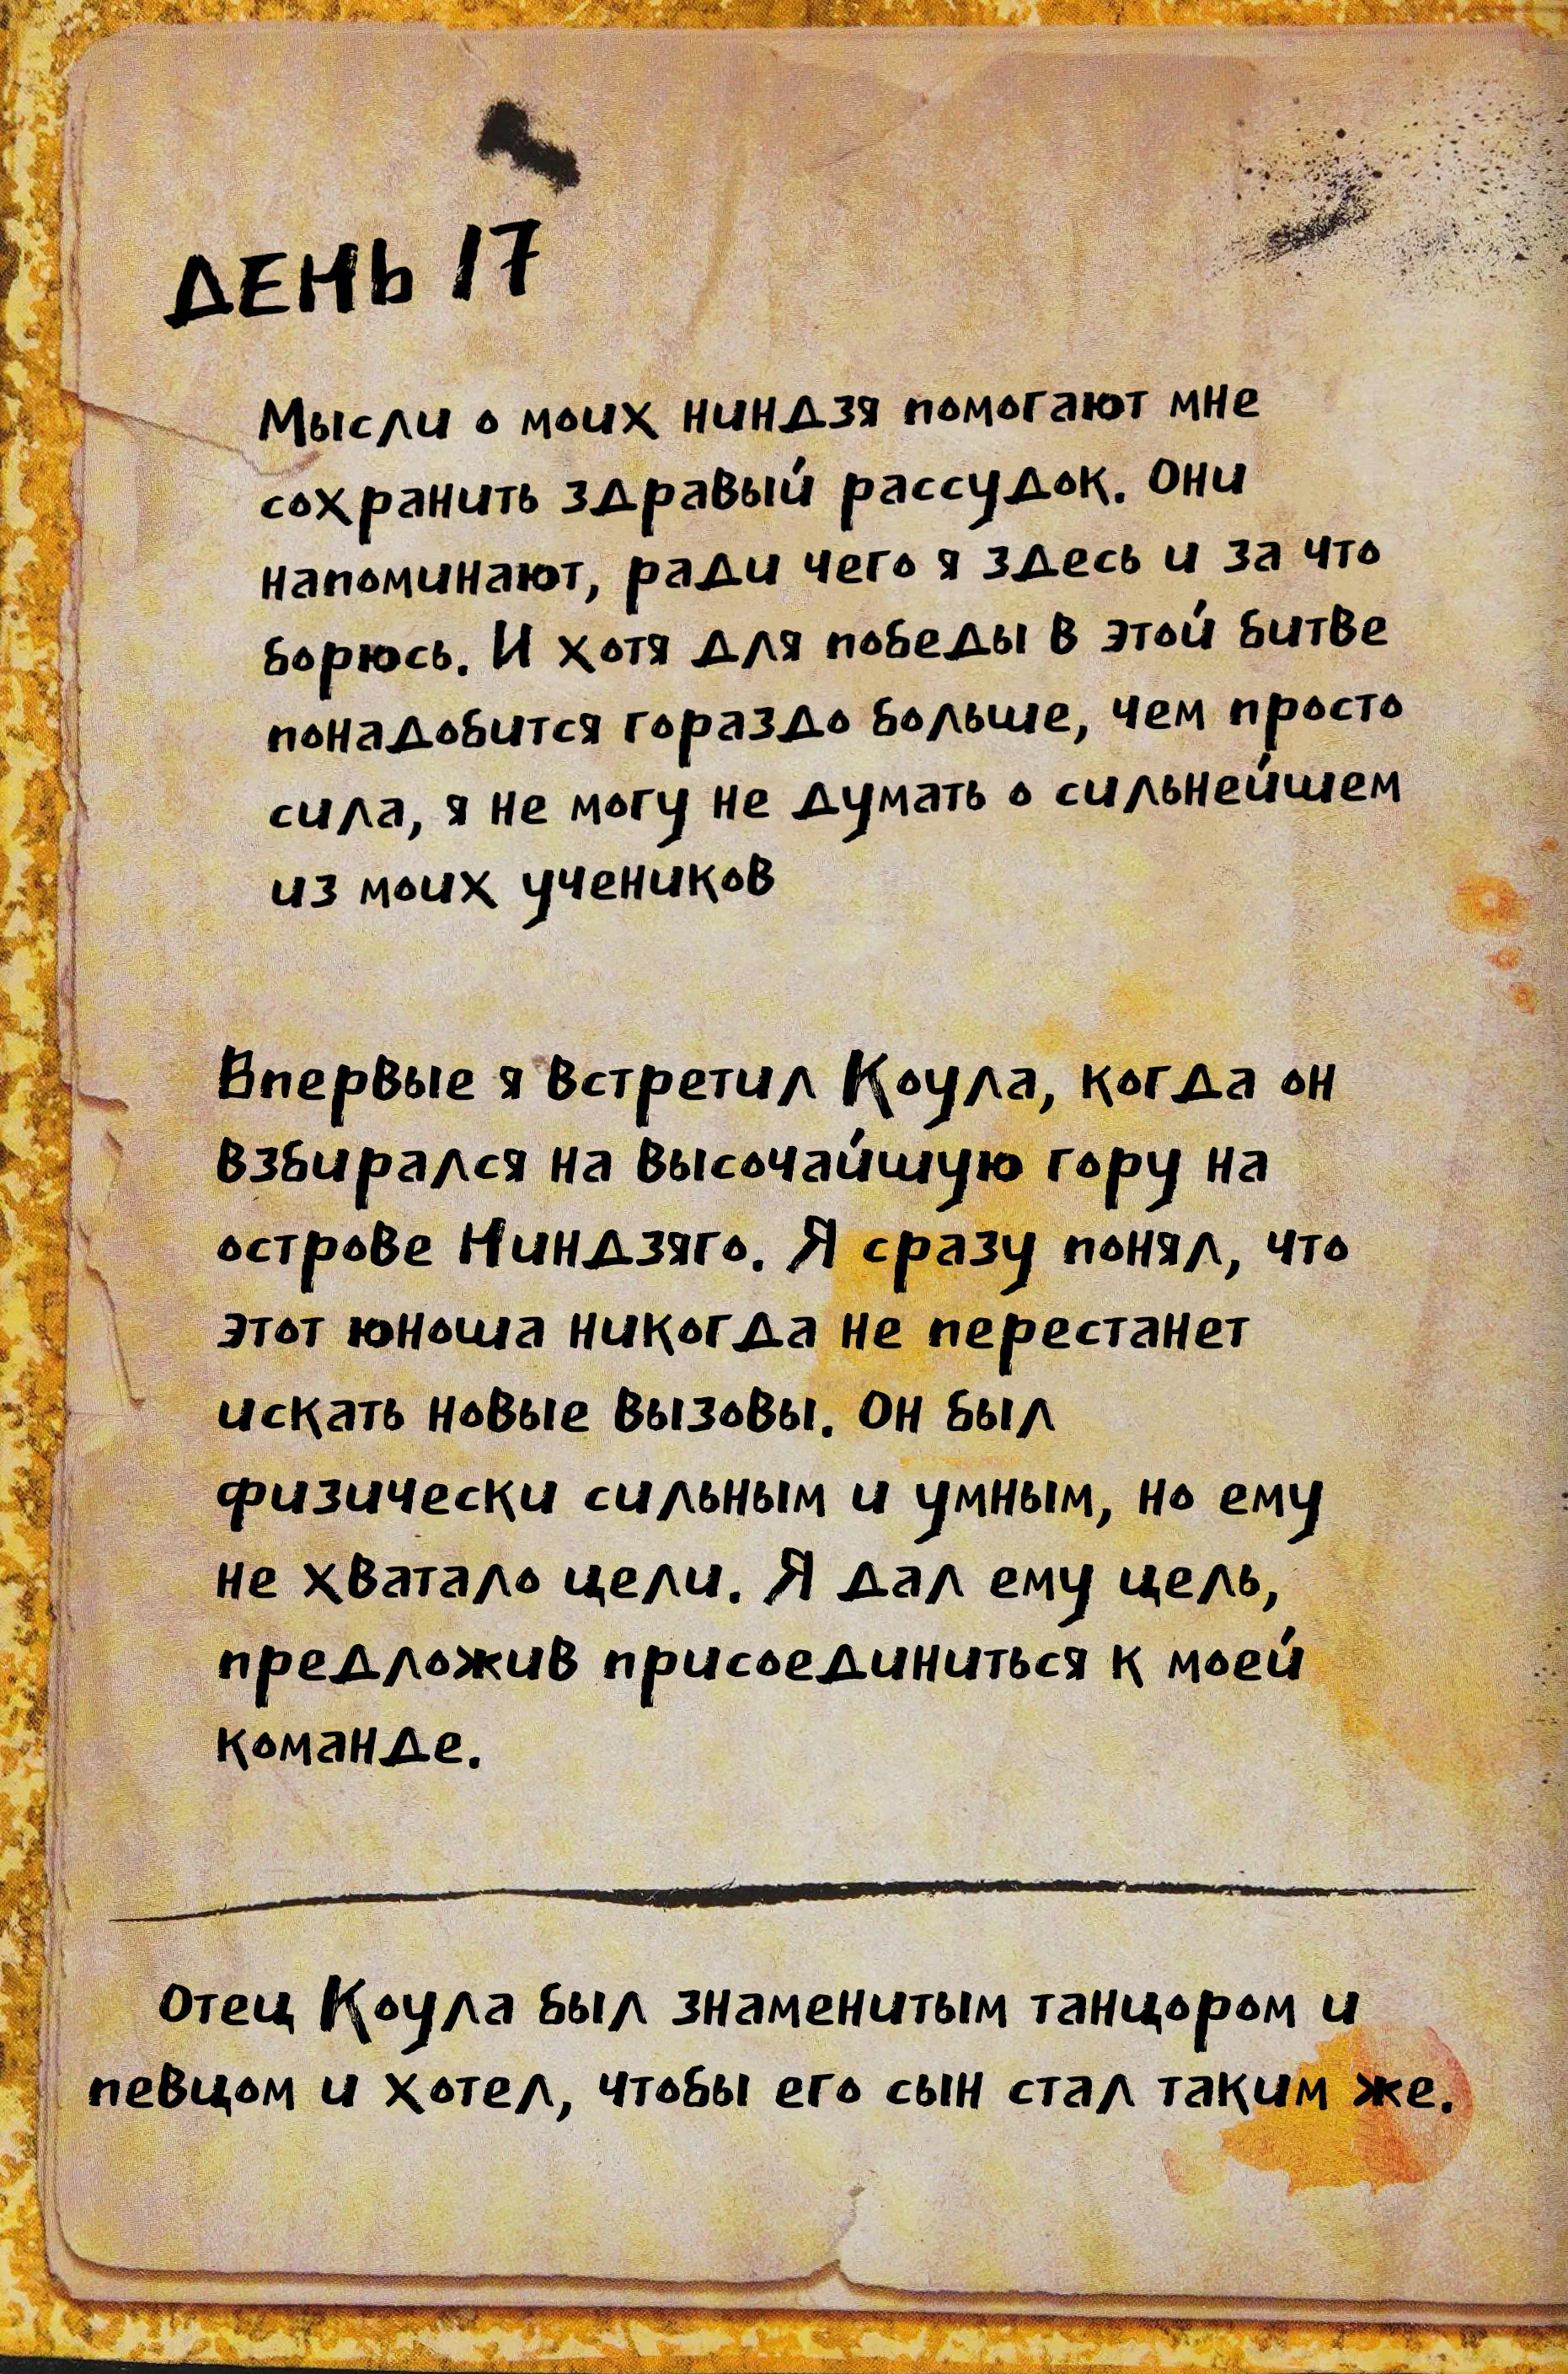 ДЕНЬ 17
Мысли о моих ниндзя помогают мне
сохранить здравый рассудок. Они
напоминают, ради чего я здесь и за что
борюсь. И хотя для победы в этой битве
понадобится гораздо больше, чем просто
сила, я не могу не думать о сильнейшем
из моих учеников
Впервые я встретил Коула, когда он
взбирался на высочайшую гору на
острове Ниндзяго. Я сразу понял, что
этот юноша никогда не перестанет
искать новые вызовы. Он был
физически сильным и умным, но ему
не хватало цели. Я дал ему цель,
предложив присоединиться к моей
команде.
Отец Коула был знаменитым танцором и
певцом и хотел, чтобы его сын стал таким же.